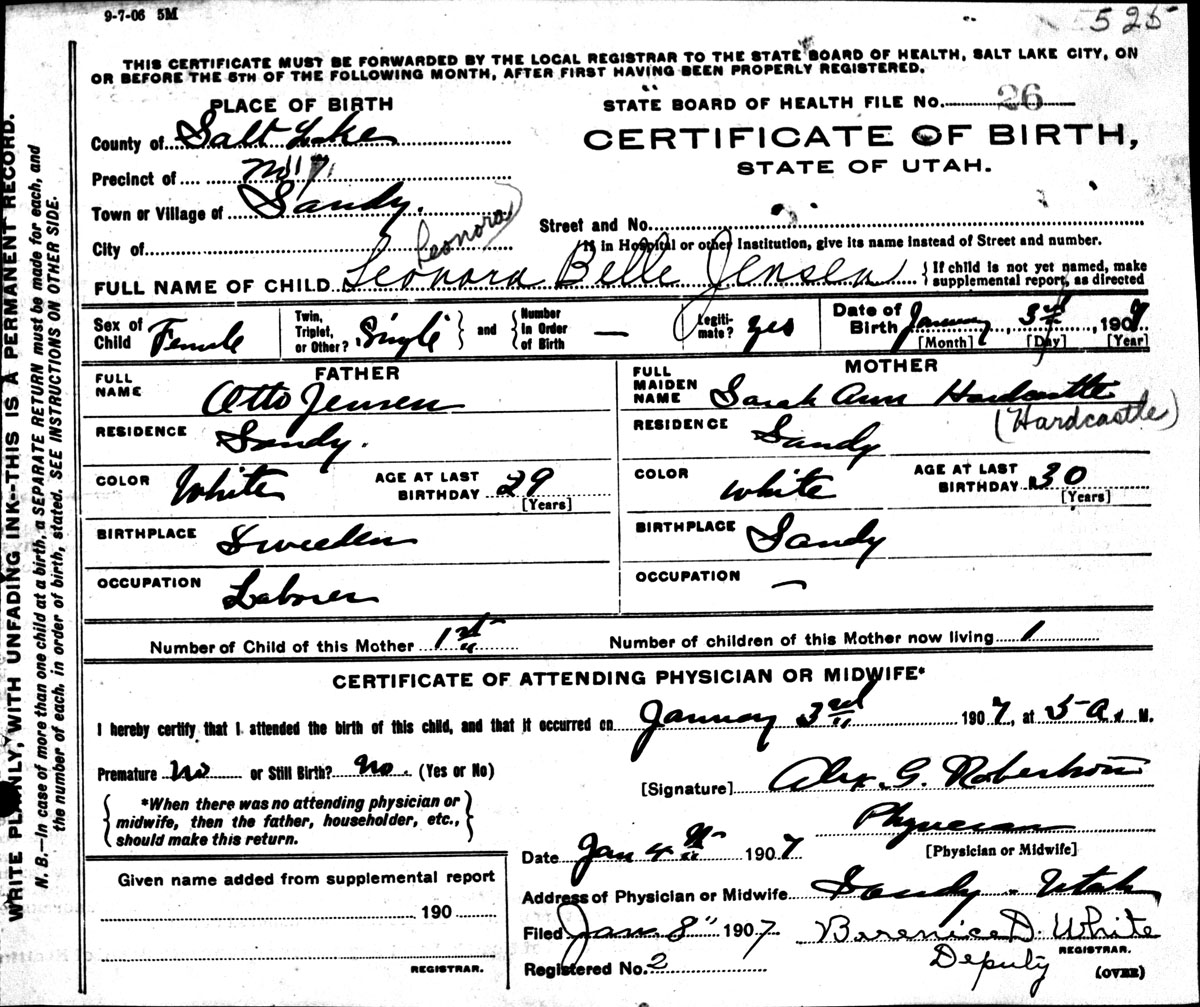 9-7-06 5M
525
THIS CERTIFICATE MUST BE FORWARDED BY THE LOCAL REGISTRAR TO THE STATE BOARD OF HEALTH, SALT LAKE CITY, ON
OR BEFORE THE 5TH OF THE FOLLOWING MONTH, AFTER FIRST HAVING BEEN PROPERLY REGISTERED.
PLACE OF BIRTH
STATE BOARD OF HEALTH FILE No. 26
County of Salt Lake
CERTIFICATE OF BIRTH,
STATE OF UTAH.
Precinct of
Town or Village of Sandy.
Street and No.
City of
Leonora
If in Hospital or other Institution, give its name instead of Street and number.
FULL NAME OF CHILD Leonora Belle Jensen { If child is not yet named, make supplemental report, as directed
Sex of Child Female Twin, Triplet, or Other? Single } and { Number In Order of Birth — Legiti- mate? yes Date of Birth January 3rd, 1907
[Month] [Day] [Year]
FATHER
MOTHER
FULL NAME Otto Jensen
FULL MAIDEN NAME Sarah Ann Hardcastle
(Hardcastle)
RESIDENCE Sandy.
RESIDENCE Sandy
COLOR White AGE AT LAST BIRTHDAY 29 [Years]
COLOR white AGE AT LAST BIRTHDAY 30 [Years]
BIRTHPLACE Sweeden
BIRTHPLACE Sandy
OCCUPATION Laborer
OCCUPATION —
Number of Child of this Mother 1st Number of children of this Mother now living 1
CERTIFICATE OF ATTENDING PHYSICIAN OR MIDWIFE*
I hereby certify that I attended the birth of this child, and that it occurred on January 3rd 1907, at 5 A. M.
Premature No or Still Birth? No. (Yes or No)
[Signature] Alex. G. Robertson
{ *When there was no attending physician or midwife, then the father, householder, etc., should make this return. }
Physician
[Physician or Midwife]
Date Jan 4th 1907
Given name added from supplemental report
190
REGISTRAR.
Address of Physician or Midwife Sandy - Utah
Filed Jan. 8" 1907 Berenice D. White
REGISTRAR.
Deputy
Registered No. 2
(OVER)
WRITE PLAINLY, WITH UNFADING INK--THIS IS A PERMANENT RECORD.
N. B.—In case of more than one child at a birth, a SEPARATE RETURN must be made for each, and
the number of each, in order of birth, stated. SEE INSTRUCTIONS ON OTHER SIDE.